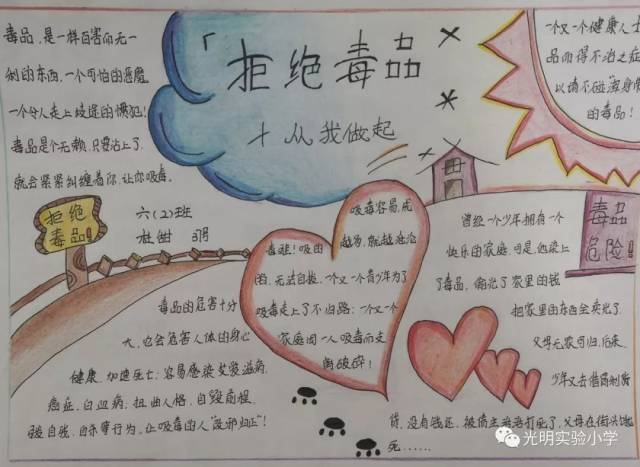 毒品，是一样百害而无一
利的东西，一个可怕的恶魔，
一个令人走上歧途的惯犯！
毒品是个无赖，只要沾上了，
就会紧紧纠缠着你，让你吸毒。
「拒绝毒品
从我做起
一个又一个健康人士
品而得不治之症
以请不碰"浑身带
的毒品！
拒绝
毒品！
六(2)班
杜甜
毒品的危害十分
大，也会危害人体的身心
健康，加速死亡；容易感染艾滋病、
癌症、白血病，扭曲人格，自毁前程，
自我、自杀等行为，让吸毒的人"没邪归正"！
吸毒容易，戒
毒难！吸
越为，就越难沦
陷，无法自拔，一个又一个青少年为了
吸毒走上了不归路；一个又一个
家庭因一人吸毒而支
离破碎！
毒品
危险！
曾经一个少年拥有一个
快乐的家庭，可是，他染上
了毒品，偷光了家里的钱
把家里的东西全卖光了
父母无家可归，后来，
少年又去借
贷，没有钱还，被债主活活打死了，父母在街头饿
死……
光明实验小学